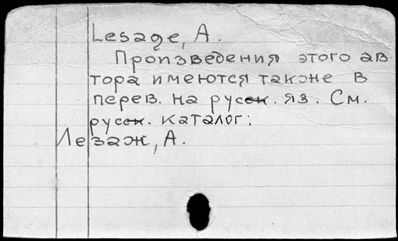 Lesage, A.
Произведения этого ав
тора имеются также в
перев. на русск. яз. См.
русск. каталог:
Лезаж, А.